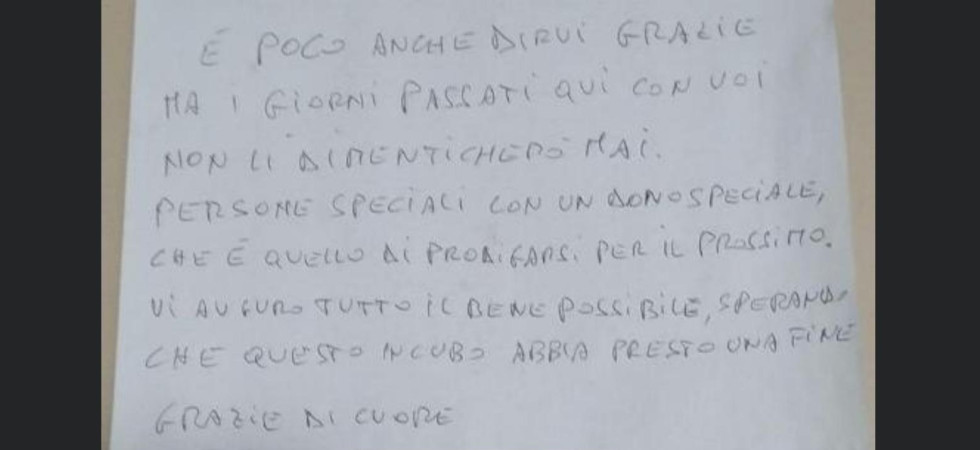 È POCO ANCHE DIRVI GRAZIE
MA I GIORNI PASSATI QUI CON VOI
NON LI DIMENTICHERÒ MAI.
PERSONE SPECIALI CON UN DONO SPECIALE,
CHE È QUELLO DI PRODIGARSI PER IL PROSSIMO.
VI AUGURO TUTTO IL BENE POSSIBILE, SPERANDO
CHE QUESTO INCUBO ABBIA PRESTO UNA FINE
GRAZIE DI CUORE